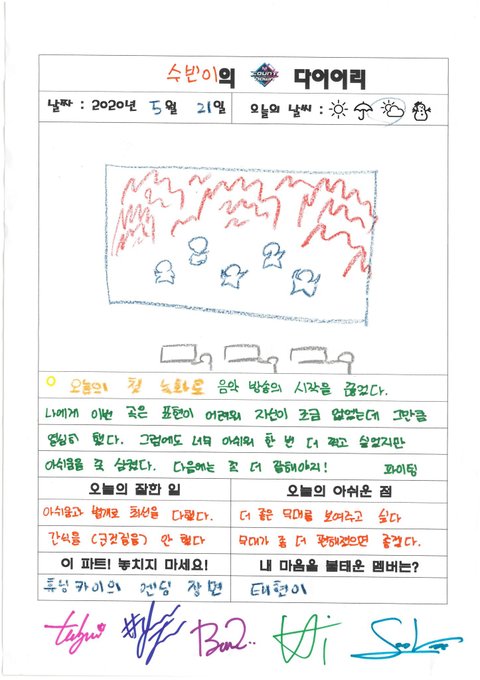 수빈이의 COUNT DOWN 다이어리
날짜 : 2020년 5월 21일 오늘의 날씨 :
오늘의 첫 녹화로 음악 방송의 시작을 끊었다.
나에게 이번 곡은 표현이 어려워 자신이 조금 없었는데 그만큼
열심히 했다. 그럼에도 너무 아쉬워 한 번 더 찍고 싶었지만
아쉬움을 꾹 삼켰다. 다음에는 좀 더 잘해야지! 파이팅
오늘의 잘한 일 오늘의 아쉬운 점
아쉬움과 별개로 최선을 다했다. 더 좋은 무대를 보여주고 싶다
간식을 (군것질을) 안 했다 무대가 좀 더 편해졌으면 좋겠다.
이 파트! 놓치지 마세요! 내 마음을 불태운 멤버는?
휴닝카이의 엔딩 장면 태현이